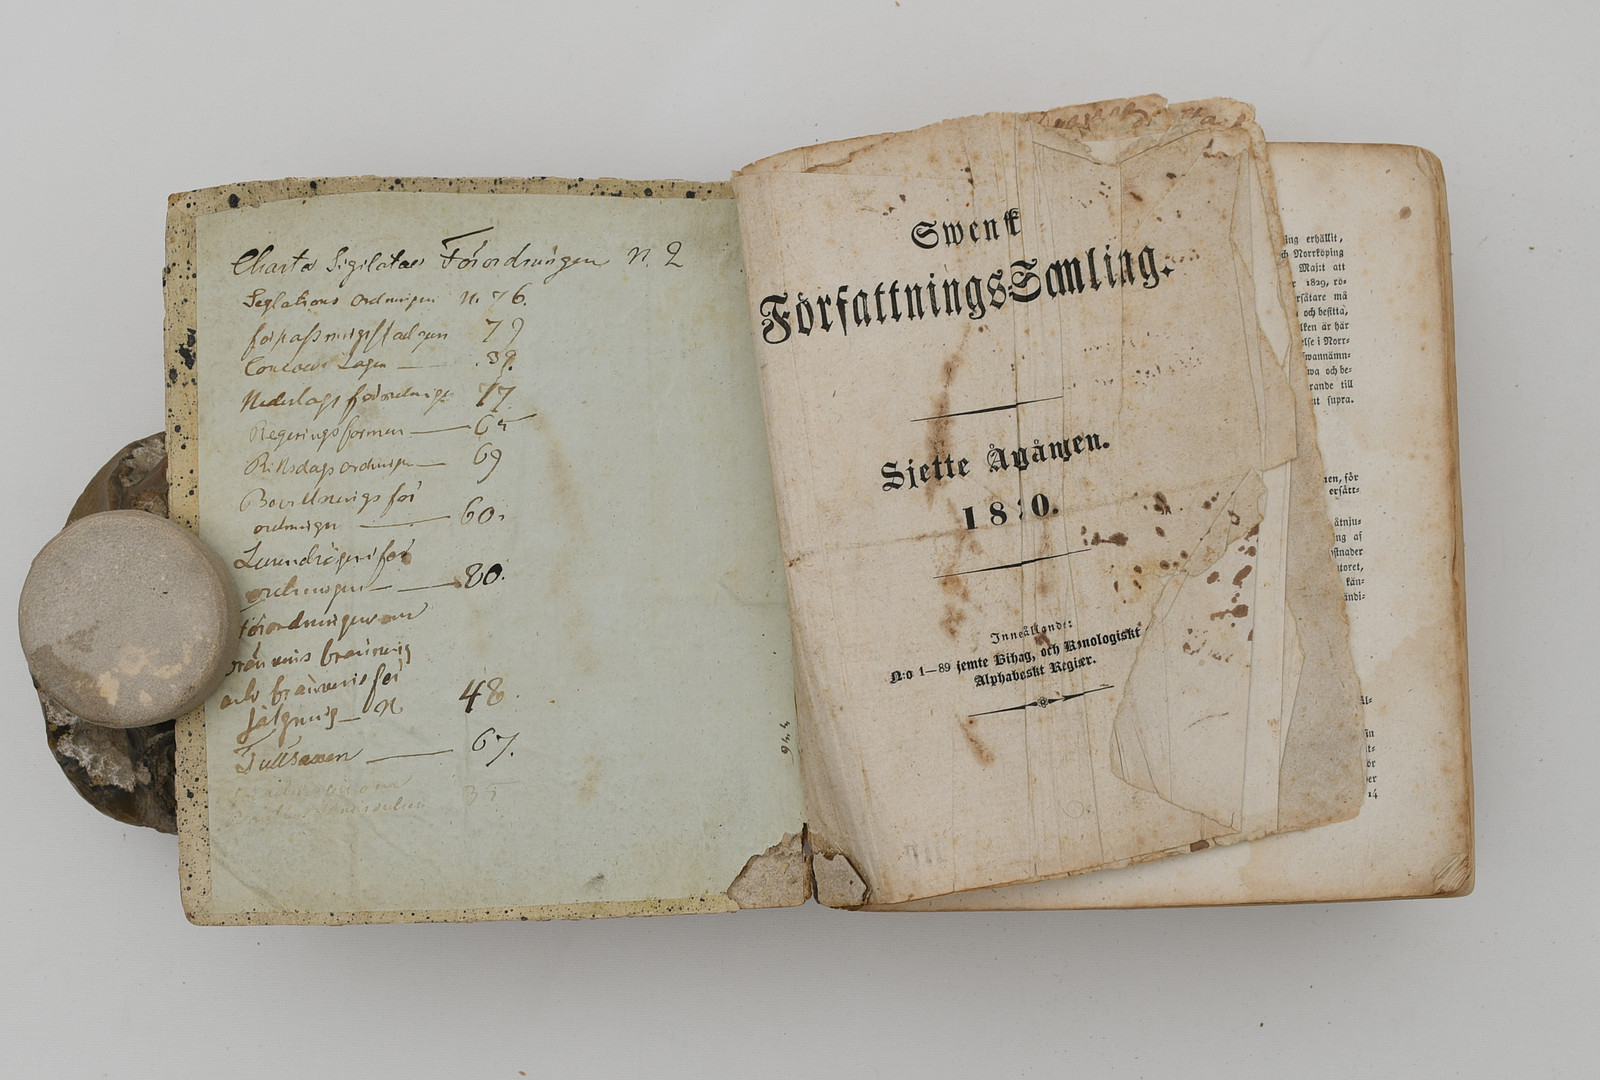 Charta Sigilatae Förordningen N. 2
Seglations ordningen N. 76.
förpassningsstadgan 79
Concours Lagen — 39.
Nederlags förordninge 77.
Regeringsformen — 65
Riksdagsordningen — 69
Bevillnings för
ordningen — 60.
ordningen — 80.
förordningen om
bränvins bränning
och bränvins för
säljning — N 48.
Tulltaxen — 67.
39
94,4
Swensk
FörfattningsSamling.
Sjette Årgången.
18 0.
Innehållande:
N:o 1—89 jemte Bihag, och Kronologiskt
Alphabeskt Register.
ing erhållit,
ch Norrköping
Maj:t att
r 1829, rö-
rsätare må
och besitta,
lken är här
else i Norr-
wannämn-
wa och be-
rande till
nt supra.
nen, för
ersätt-
åtnju-
ng af
ostnader
ntoret,
kän-
ändi-
äl-
in
t-
ör
per
14